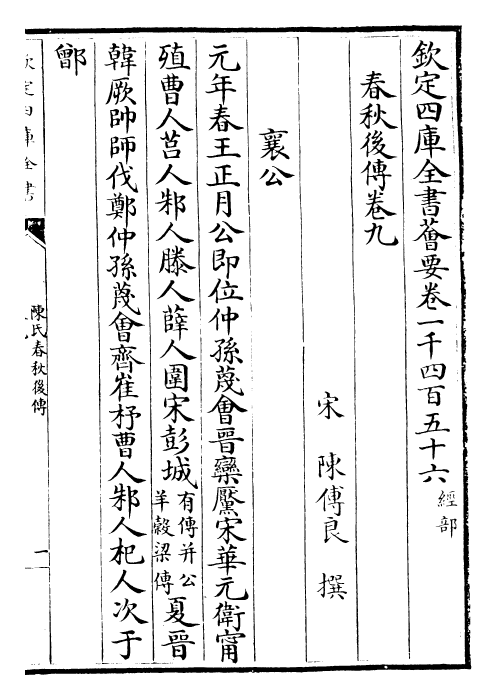 欽定四庫全書薈要卷一千四百五十六 經部
春秋後傳卷九
宋 陳傅良 撰
襄公
元年春王正月公即位仲孫蔑會晉欒黶宋華元衛甯
殖曹人莒人邾人滕人薛人圍宋彭城有傳并公羊糓梁傳夏晉
韓厥帥師伐鄭仲孫蔑會齊崔杼曹人邾人杞人次于
鄫
欽定四庫全書
陳氏春秋後傳
一